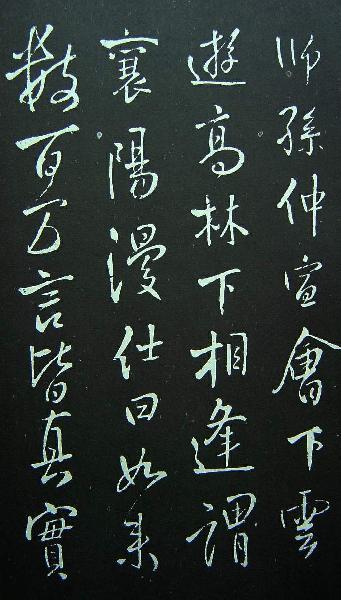 師孫仲宣會下雲
遊高林下相逢謂
襄陽漫仕曰如来
數百万言皆真實